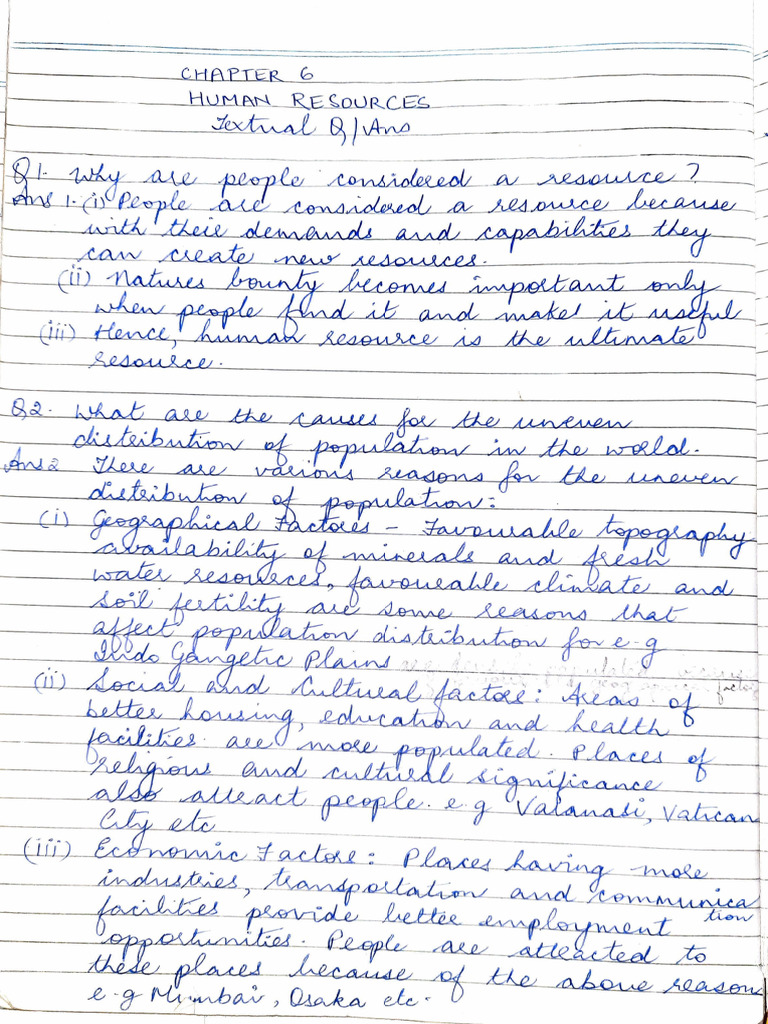 CHAPTER 6
HUMAN RESOURCES
Textual Q/Ans
Q1. Why are people considered a resource?
Ans 1. (i) People are considered a resource because
with their demands and capabilities they
can create new resources.
(ii) Natures bounty becomes important only
when people find it and makes it useful
(iii) Hence, human resource is the ultimate
resource.
Q2. What are the causes for the uneven
distribution of population in the world.
Ans 2 There are various reasons for the uneven
distribution of population:
(i) Geographical Factors - Favourable topography
availability of minerals and fresh
water resources, favourable climate and
soil fertility are some reasons that
affect population distribution for e.g
Indo Gangetic Plains
(ii) Social and Cultural factors: Areas of
better housing, education and health
facilities are more populated. Places of
religious and cultural significance
also attract people. e.g Varanasi, Vatican
City etc
(iii) Economic Factors: Places having more
industries, transportation and communica
tion
facilities provide better employment
opportunities. People are attracted to
these places because of the above reason
e.g Mumbai, Osaka etc.